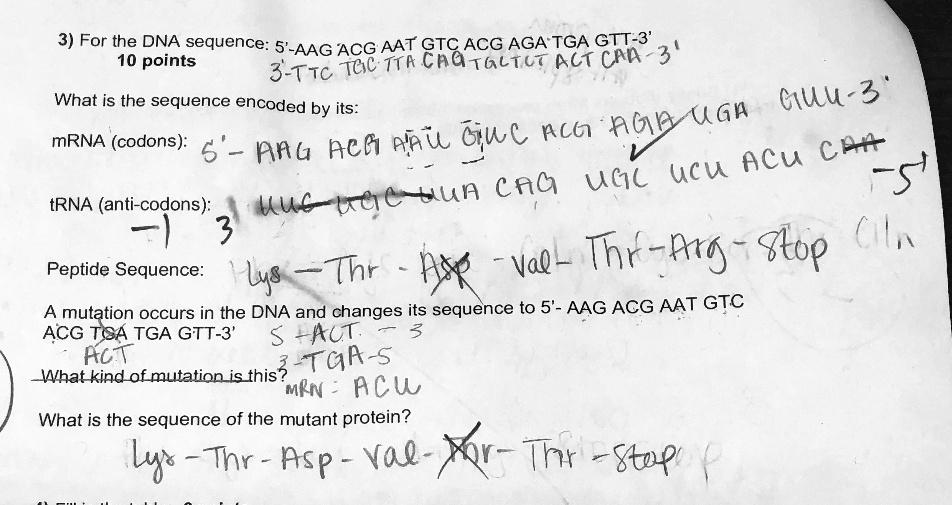 3) For the DNA sequence: 5'-AAG ACG AAT GTC ACG AGA TGA GTT-3'
10 points 3'-TTC TGC TTA CAG TGC TCT ACT CAA-3'
What is the sequence encoded by its:
mRNA (codons): 5'- AAG ACG AAU GUC ACG AGA UGA GUU-3'
tRNA (anti-codons): 3' UUC UGC UUA CAG UGC UCU ACU CAA -5'
-1
Peptide Sequence: Lys - Thr - Asp - Val - Thr - Arg - Stop Gln
A mutation occurs in the DNA and changes its sequence to 5'- AAG ACG AAT GTC
ACG TGA TGA GTT-3' 5 - ACT - 3
ACT 3-TGA-5
What kind of mutation is this? MRN: ACU
What is the sequence of the mutant protein?
Lys - Thr - Asp - Val - Thr - Thr - Stop